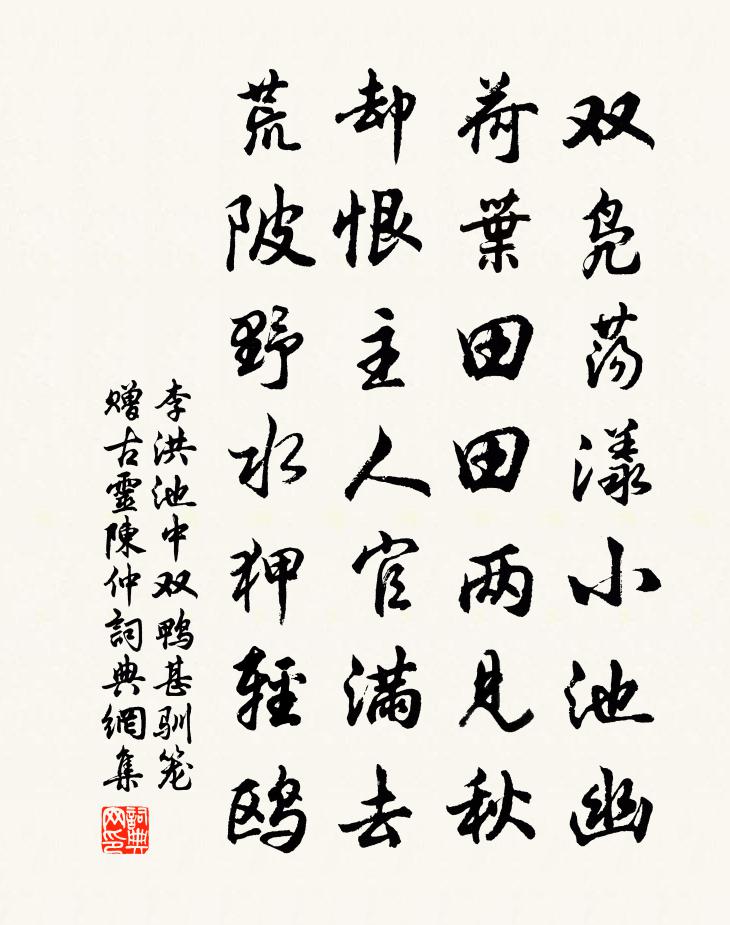 双凫荡漾小池幽
荷葉田田两见秋
却恨主人官满去
荒陂野水狎輕鸥
李洪池中双鴨甚驯笼
赠古靈陳仲詞典網集
詞典网印